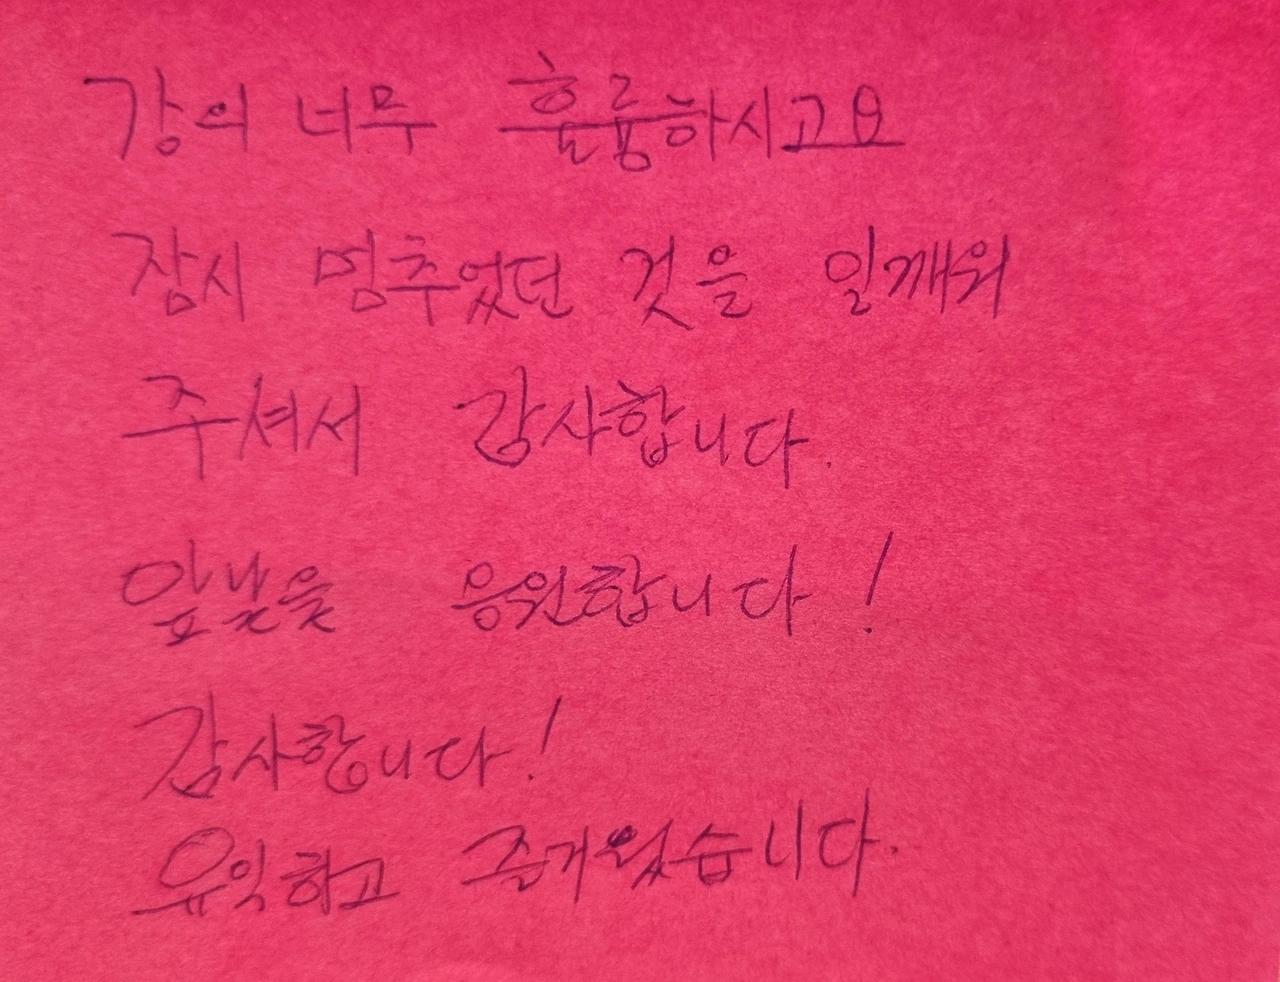 강의 너무 훌륭하시고요
잠시 멈추었던 것을 일깨워
주셔서 감사합니다.
앞날을 응원합니다!
감사합니다!
유익하고 즐거웠습니다.